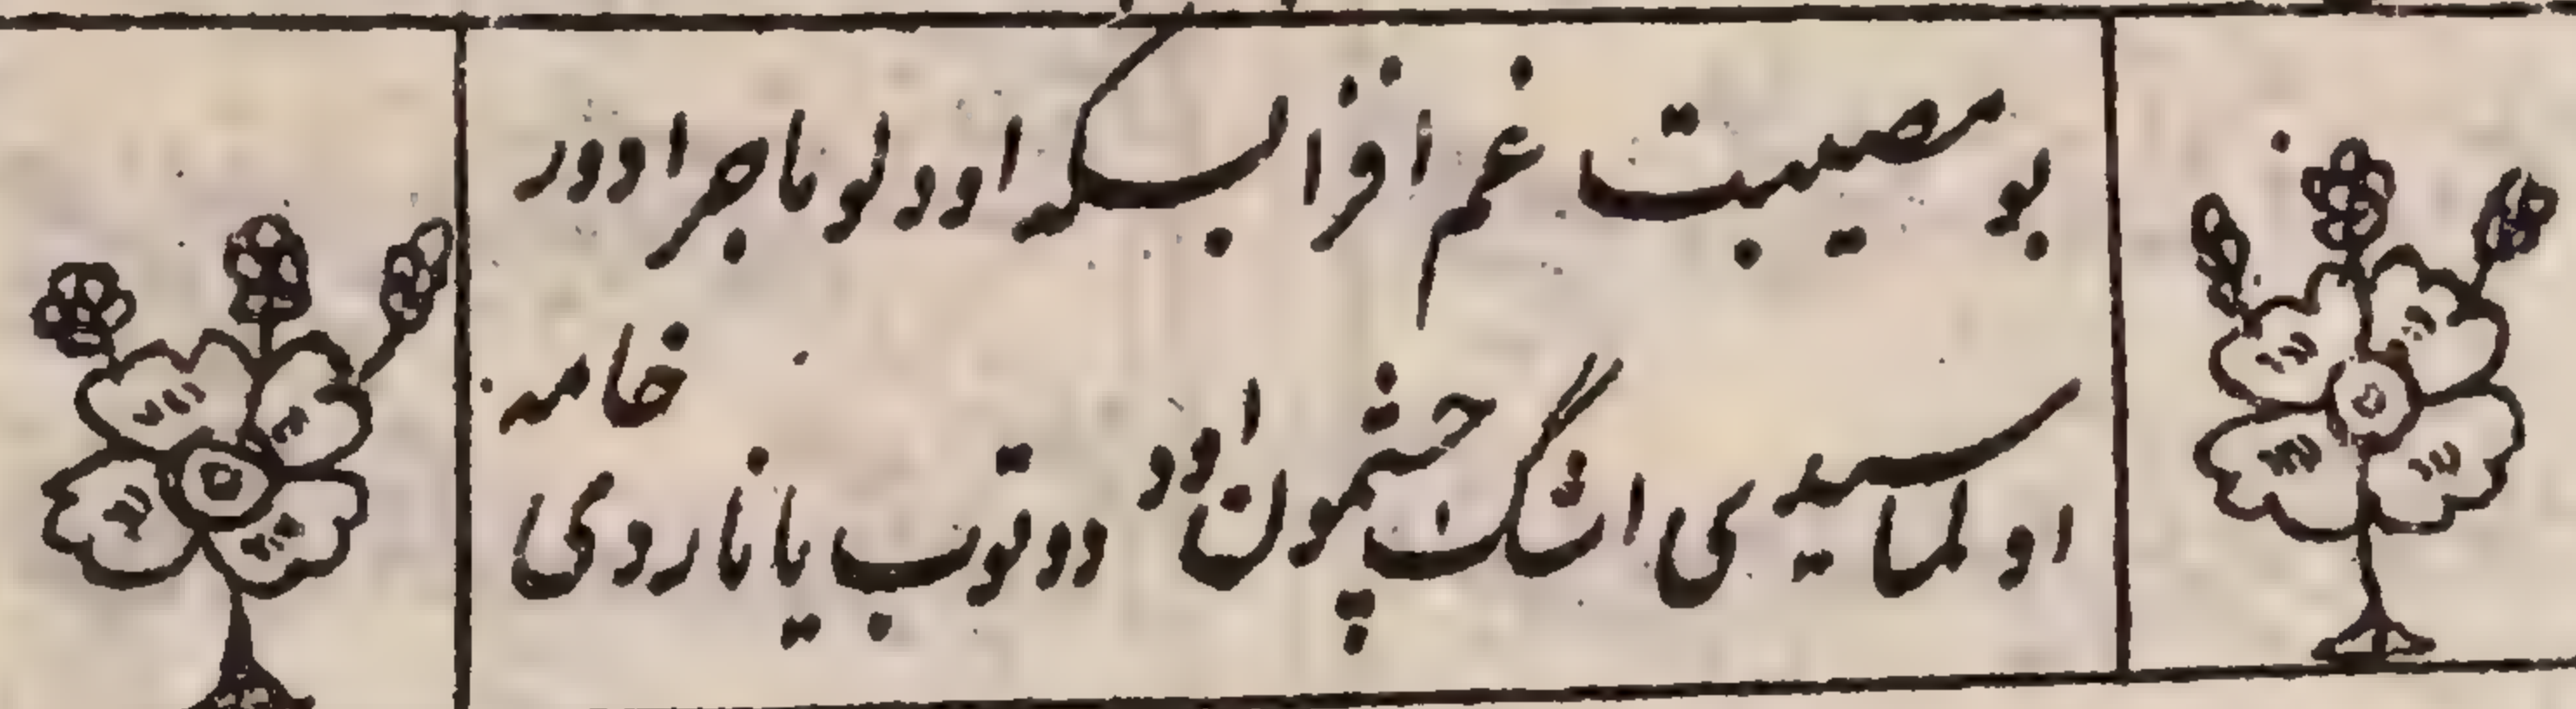 بو مصیبت غم افزا بسکه اودلو ماجرادور
اولماسیدی اشگ چشمون اود دوتوب یاناردی خامه